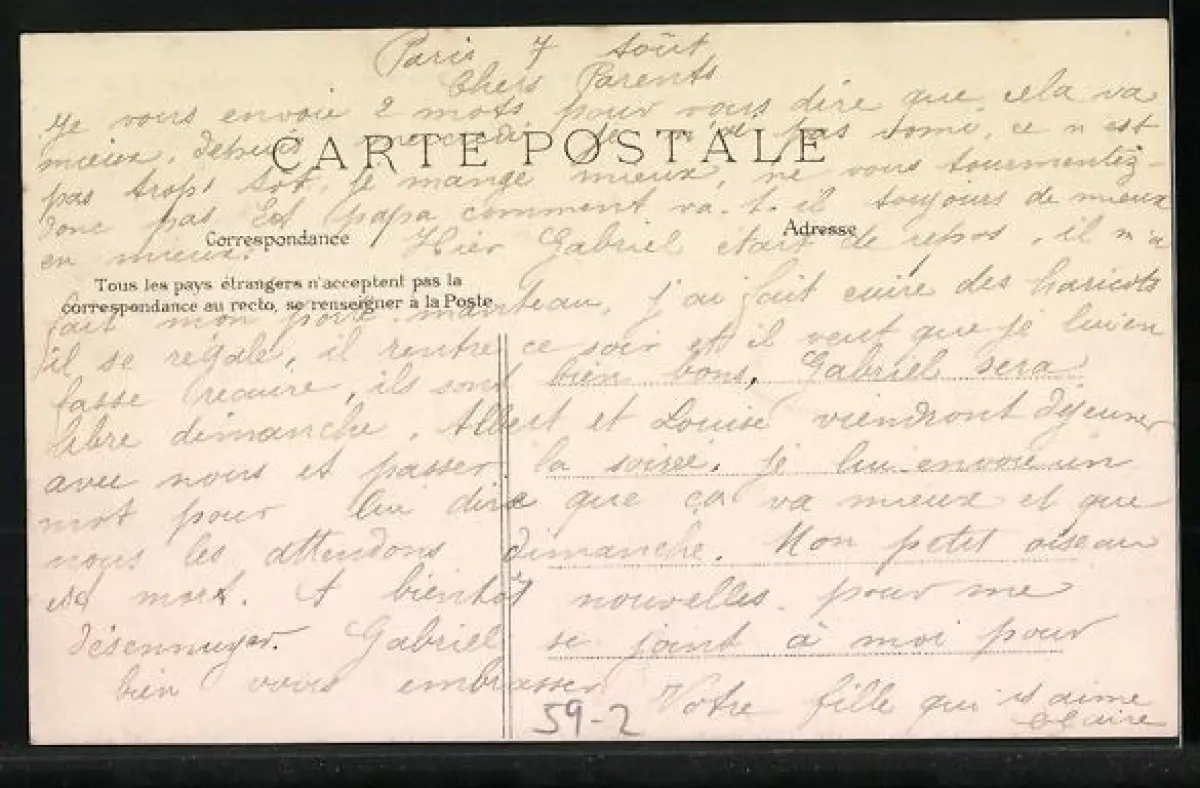 Paris 7 Août
Chers Parents
Je vous envoie 2 mots pour vous dire que cela va
mieux, depuis mercredi je n'ai pas vomi, ce n'est
CARTE POSTALE
pas trop tot. Je mange mieux, ne vous tourmentez-
donc pas Et papa comment va-t-il toujours de mieux
Correspondance
Adresse
en mieux. Hier Gabriel était de repos, il m'a
Tous les pays étrangers n'acceptent pas la
correspondance au recto, se renseigner à la Poste
fait mon porte-manteau, j'ai fait cuire des haricots
il se régale, il rentre ce soir et il veut que je lui en
fasse recuire, ils sont bien bons, Gabriel sera
libre dimanche, Albert et Louise viendront déjeuner
avec nous et passer la soirée. Je lui envoie un
mot pour lui dire que ça va mieux et que
nous les attendons dimanche. Mon petit oiseau
est mort. A bientôt nouvelles pour me
désennuyer. Gabriel se joint à moi pour
bien vous embrasser
Votre fille qui vs aime
Claire
59-2